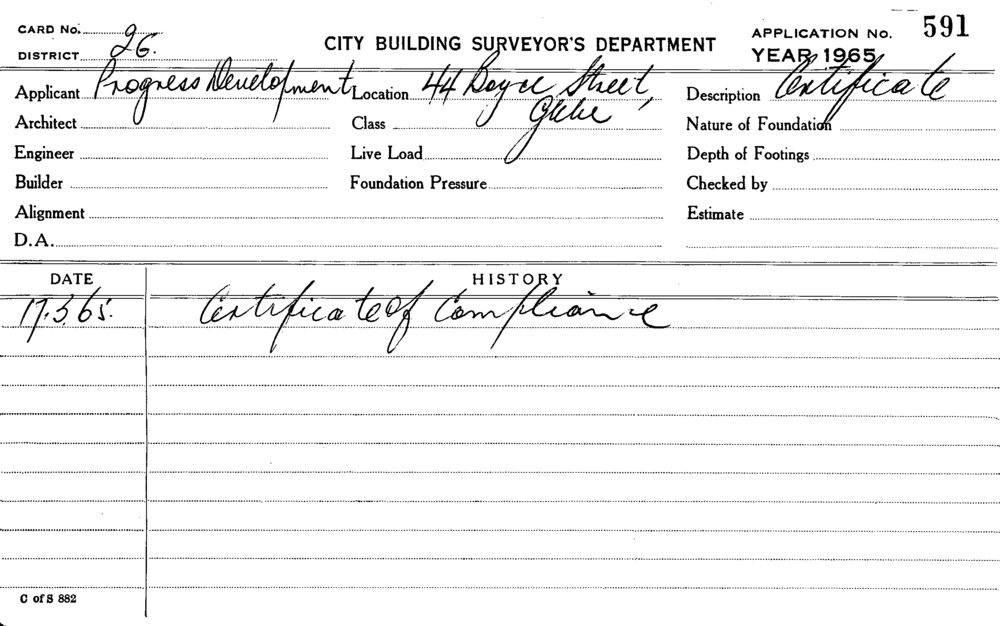 CARD No.
DISTRICT 26.
CITY BUILDING SURVEYOR'S DEPARTMENT
APPLICATION No. 591
YEAR 1965
Applicant Progress Development Location 44 Boyce Street, Description Certificate
Glebe
Architect Class Nature of Foundation
Engineer Live Load Depth of Footings
Builder Foundation Pressure Checked by
Alignment Estimate
D.A.
DATE HISTORY
17.3.65. Certificate of Compliance
C of S 882